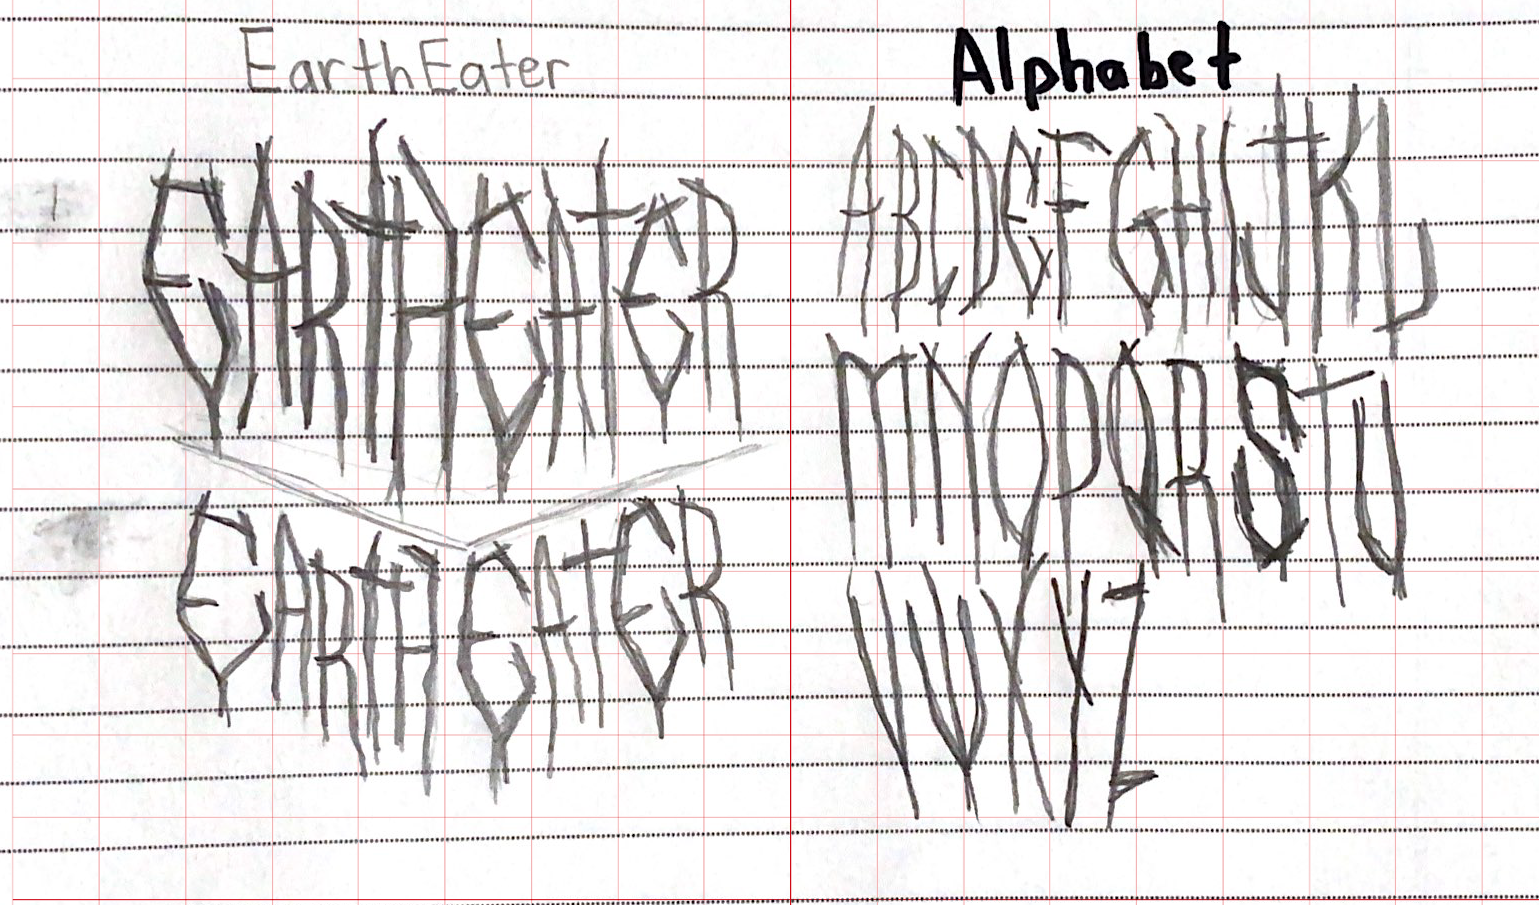 EarthEater
EARTHEATER
EARTHEATER
Alphabet
ABCDEFGHIJKL
MNOPQRSTU
VWXYZ